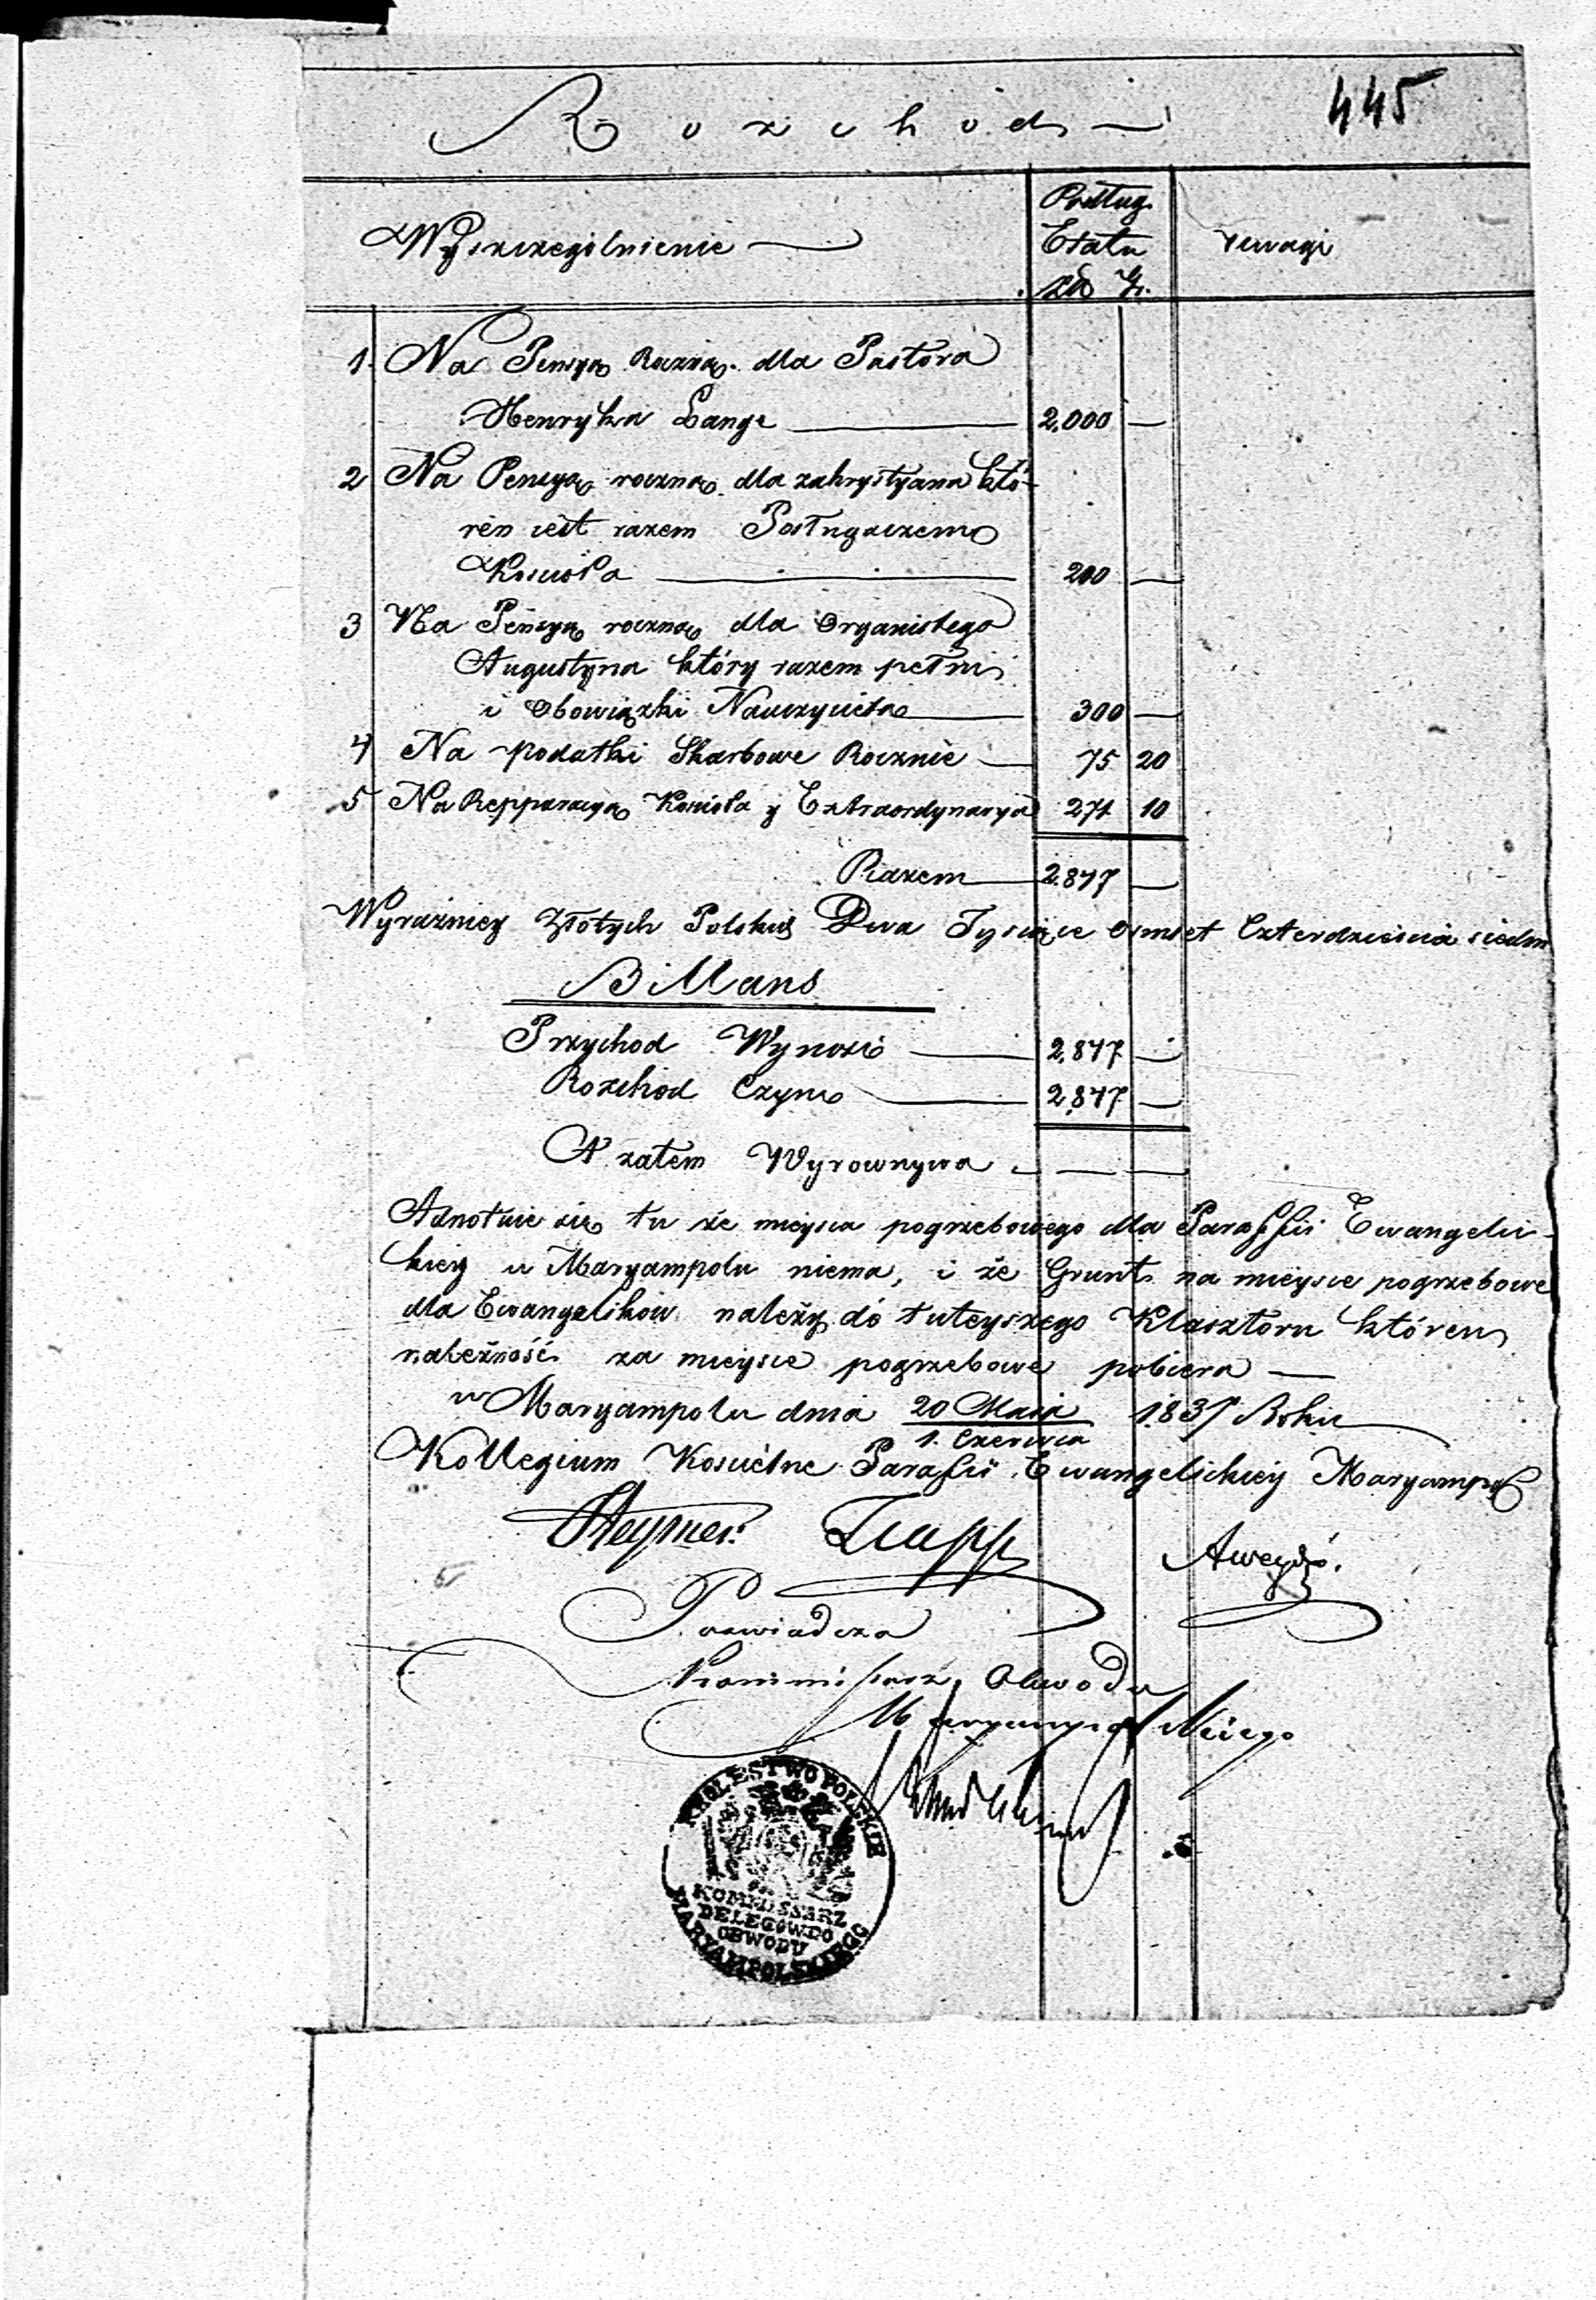 445
Rozchód
Wyszczególnienie
Podług
Etatu
Złp gr.
Uwagi
1. Na Pensyą Roczną dla Pastora
Henryka Lange 2,000 —
2 Na Pensyą roczną dla zakrystyana któ-
ren iest razem Posługaczem
Kościoła 200 —
3 Na Pensyą roczną dla Organistego
Augustyna który razem pełni
i Obowiązki Nauczyciela 300 —
4 Na podatki Skarbowe Rocznie 75 20
5 Na Repparacyą Kościoła y Extraordynarya 271 10
Razem 2.847 —
Wyraźniey Złotych Polskich Dwa Tysiące ośmset Czterdzieścia siedm
Billans
Przychod Wynosi 2,847 —
Rozchod Czyni 2,847 —
A zatem Wyrownywa — —
Adnotuie się tu że mieysca pogrzebowego dla Paraffii Ewangelic-
kiey w Maryampolu niema, i że Grunt na mieysce pogrzebowe
dla Ewangelikow należy do tuteyszego Klasztoru któren
należność za mieysce pogrzebowe pobiera —
w Maryampolu dnia 20 Maia 1837 Roku
1. Czerwca
Kollegium Kościelne Parafii Ewangelickiey Maryampol
Poświadcza
Kommissarz Obwodu
Maryampolskiego
KRÓLESTWO POLSKIE
KOMMISSARZ
DELEGOWNY
OBWODU
MARYAMPOLSKIEGO